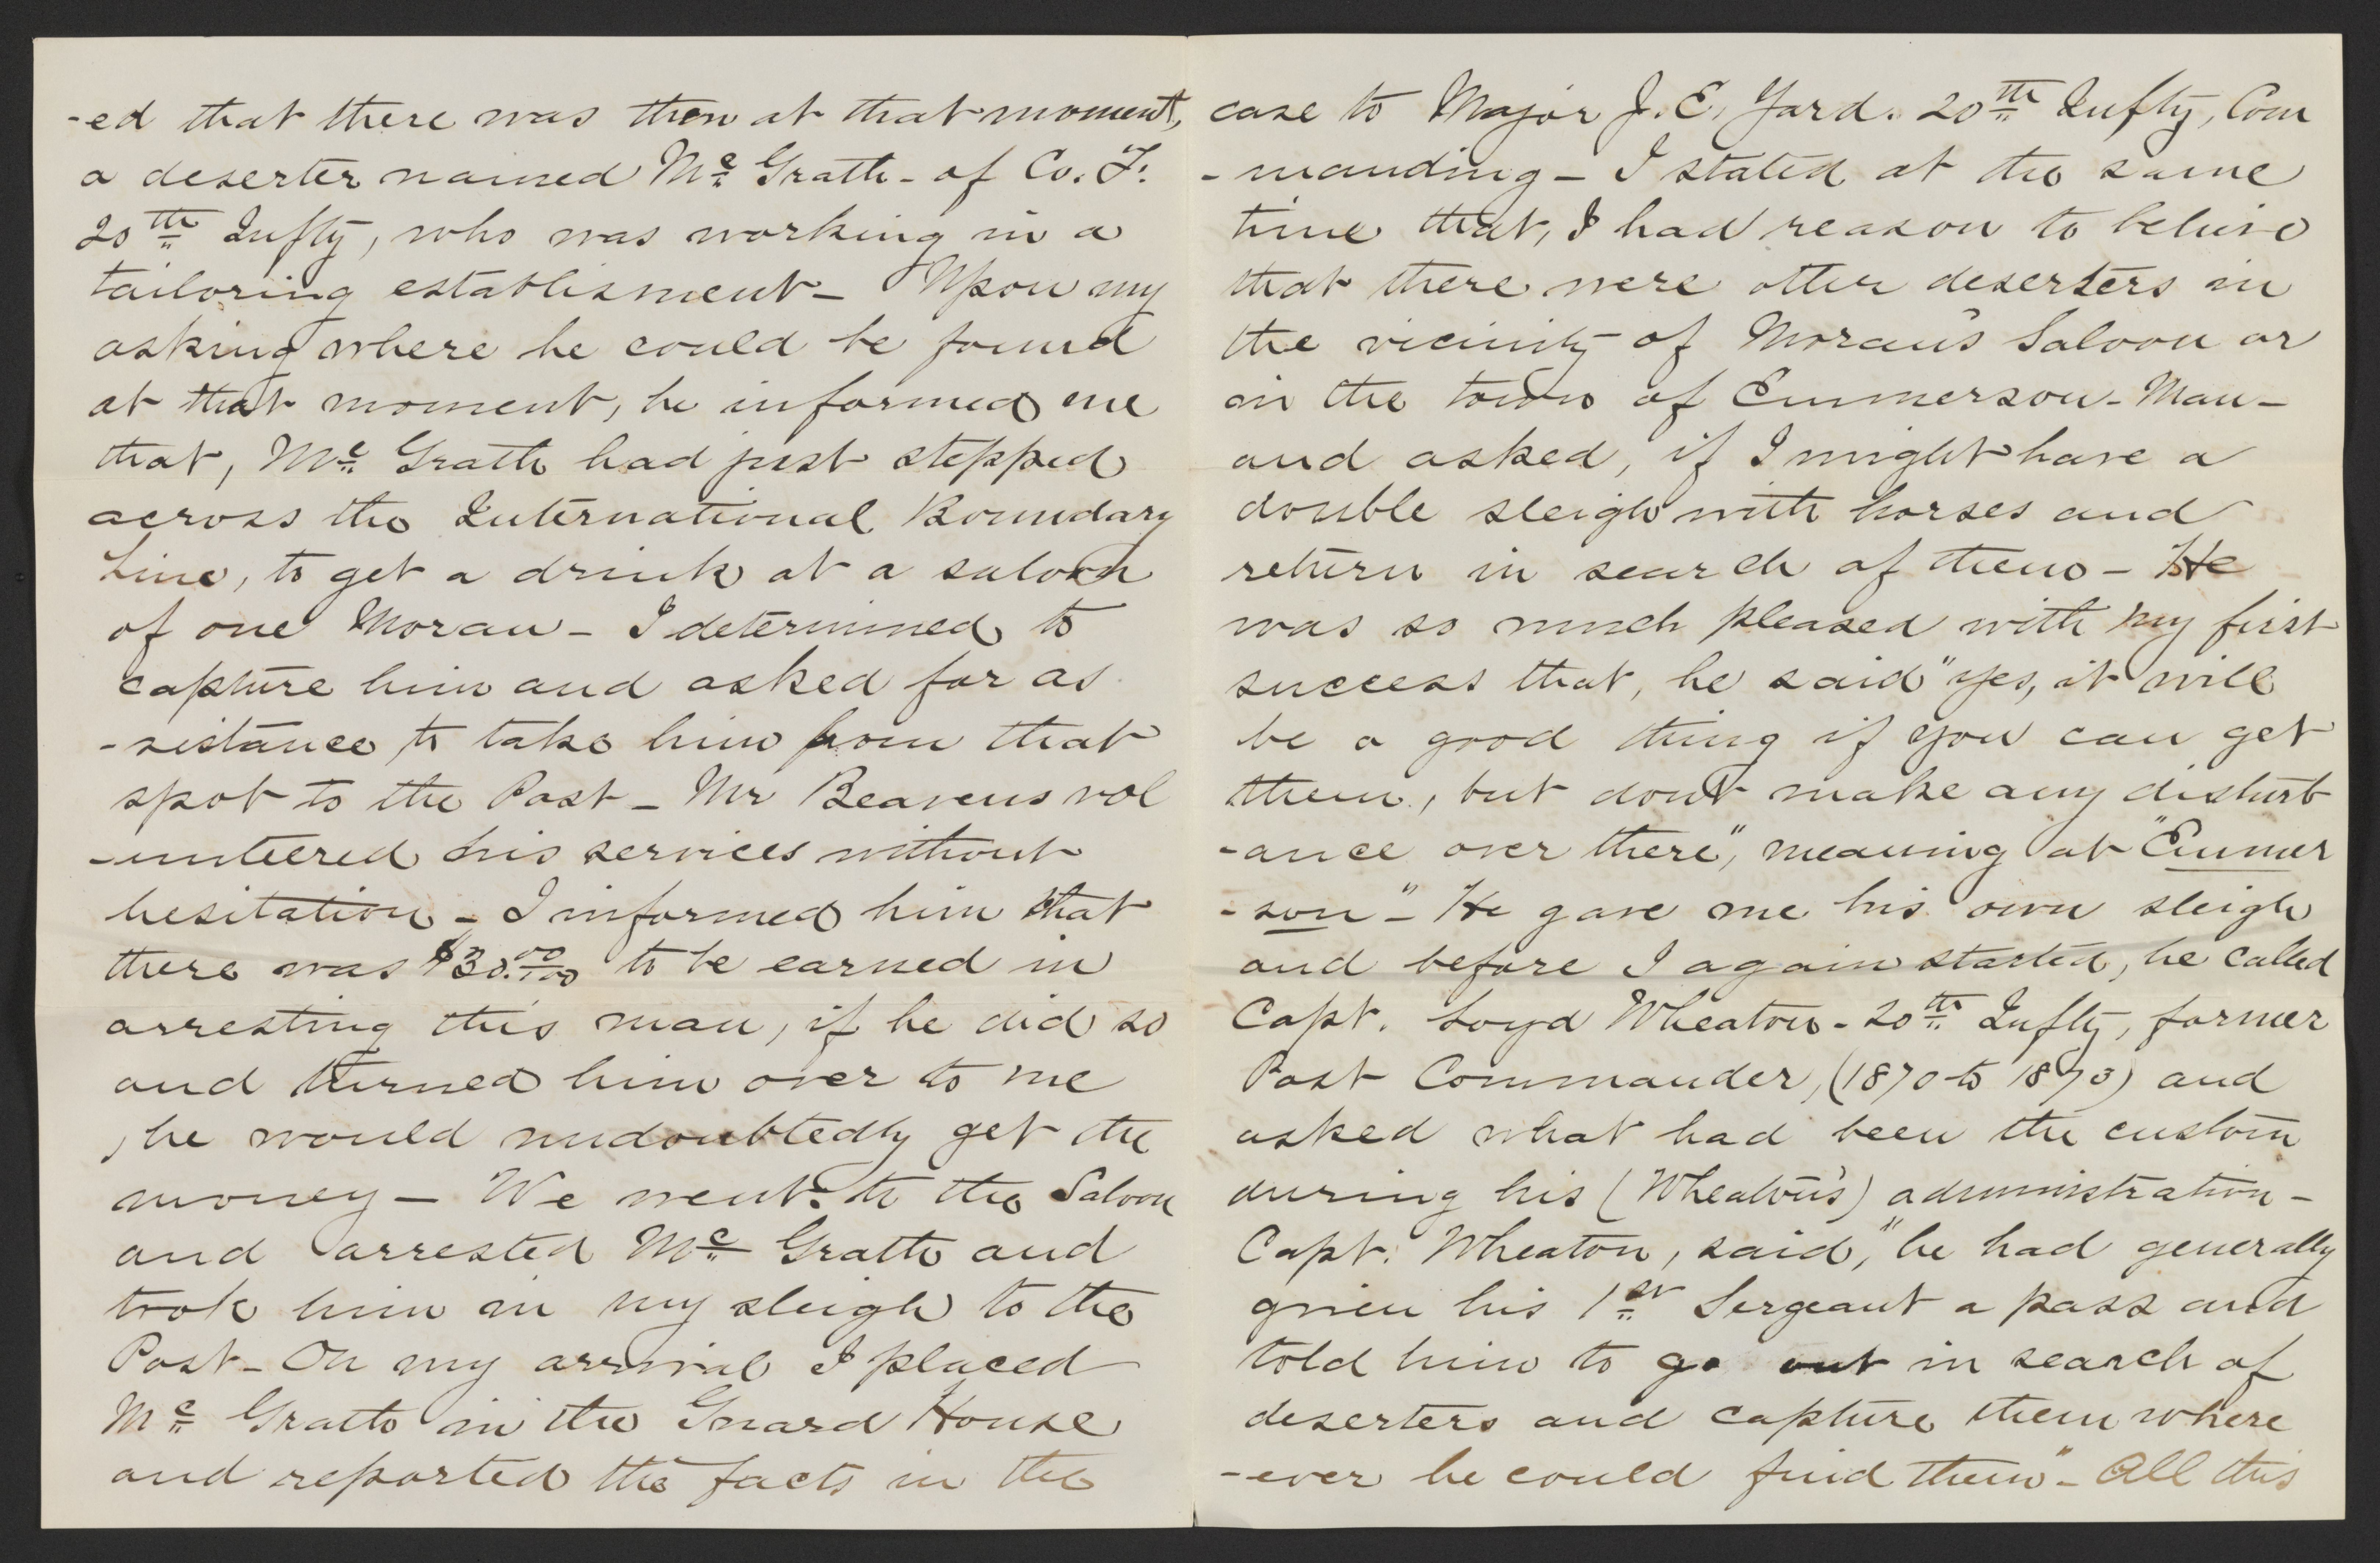 -ed that there was then at that moment,
a deserter named Mc Grath - of Co. F.
20th Infty, who was working in a
tailoring establisment - Upon my
asking where he could be found
at that moment, he informed me
that, Mc Grath had just stepped
across the International Boundary
Line, to get a drink at a saloon
of one Moran - I determined to
capture him and asked for as
-sistance to take him from that
spot to the Post - Mr Beavens vol
-unteered his services without
hesitation - I informed him that
there was $30.00/100 to be earned in
arresting this man, if he did so
and turned him over to me
, he would undoubtedly get the
money - We went to the Saloon
and arrested Mc Grath and
took him in my sleigh to the
Post - On my arrival I placed
Mc Grath in the Guard House
and reported the facts in the
case to Major J. E. Yard. 20th Infty, Com
-manding - I stated at the same
time that, I had reason to believe
that there were other deserters in
the vicinity of Moran's Saloon or
in the town of Emmerson - Man -
and asked, if I might have a
double sleigh with horses and
return in search of them - He
was so much pleased with my first
success that, he said "yes, it will
be a good thing if you can get
them, but don't make any disturb
-ance over there", meaning at "Emmer
-son" - He gave me his own sleigh
and before I again started, he called
Capt. Loyd Wheaton - 20th Infty, former
Post Commander, (1870 to 1873) and
asked what had been the custom
during his (Wheaton's) administration -
Capt. Wheaton, said, "he had generally
given his 1st Sergeant a pass and
told him to go out in search of
deserters and capture them where
-ever he could find them" - All this